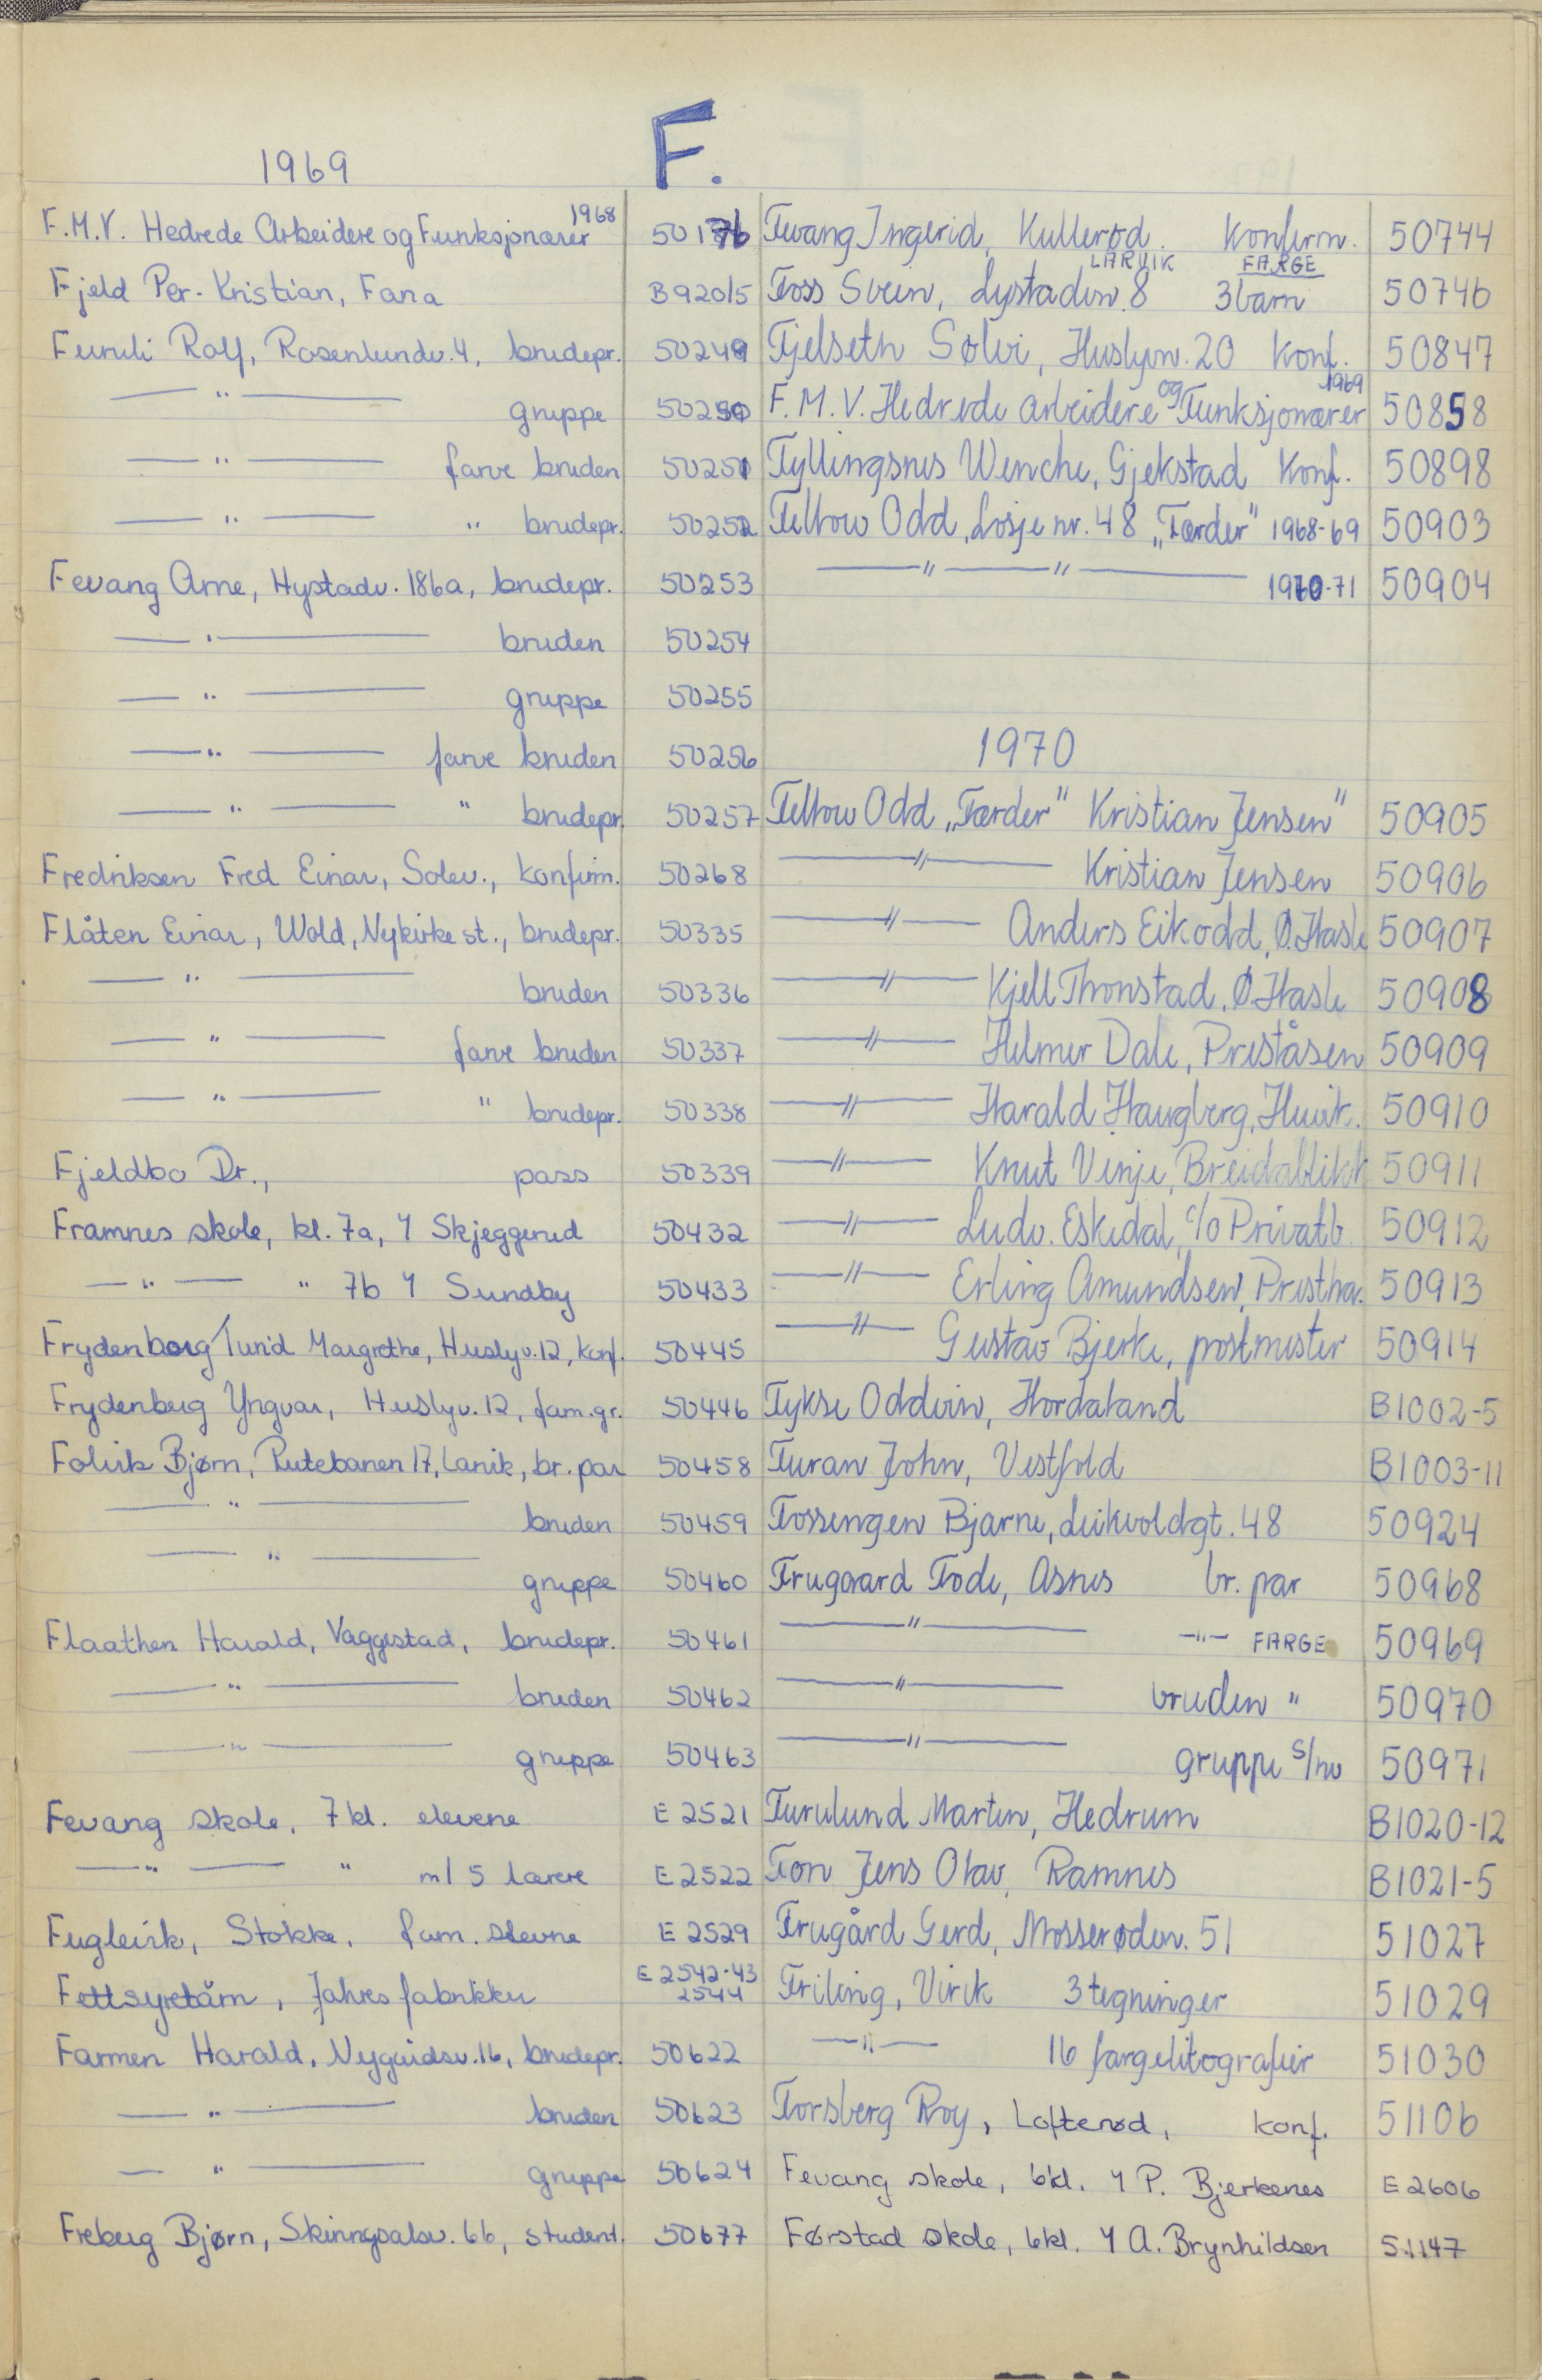 F.
1969
F.M.V. Hedrede Arbeidere og Funksjonærer 1968 50176
Fjeld Per-Kristian, Fana B92015
Furuli Rolf, Rosenlundv. 4, brudepr. 50249
— " — gruppe 50250
— " — farve bruden 50251
— " — " brudepr. 50252
Fevang Arne, Hystadv. 186a, brudepr. 50253
— " — bruden 50254
— " — gruppe 50255
— " — farve bruden 50256
— " — " brudepr. 50257
Fredriksen Fred Einar, Solev., konfirm. 50268
Flåten Einar, Wold, Nykirke st., brudepr. 50335
— " — bruden 50336
— " — farve bruden 50337
— " — " brudepr. 50338
Fjeldbo Dr., pass 50339
Framnes skole, kl. 7a, Y Skjeggerud 50432
— " — " 7b Y Sundby 50433
Frydenborg Turid Margrethe, Huslyv. 12, konf. 50445
Frydenberg Yngvar, Huslyv. 12, fam.gr. 50446
Folvik Bjørn, Rutebanen 17, Larvik, br. par 50458
— " — bruden 50459
— " — gruppe 50460
Flaathen Harald, Vaggestad, brudepr. 50461
— " — bruden 50462
— " — gruppe 50463
Fevang skole, 7 kl. elevene E 2521
— " — " m/ 5 lærere E 2522
Fuglevik, Stokke, fam. stevne E 2529
Fettsyretårn, Jahres fabrikker E 2542-43 2544
Farmen Harald, Nygaardsv. 16, brudepr. 50622
— " — bruden 50623
— " — gruppe 50624
Freberg Bjørn, Skiringsalsv. 66, student. 50677
Fevang Ingerid, Kullerød. Konfirm. 50744
Foss Svein, Lystadvn. 8 LARVIK 3 barn FARGE 50746
Fjelseth Sølvi, Huslyvn. 20 Konf. 50847
F.M.V. Hedrede arbeidere og Funksjonærer 1969 50858
Fyllingsnes Wenche, Gjekstad Konf. 50898
Feltow Odd, Losje nr. 48 „Færder" 1968-69 50903
— " — " — 1970-71 50904
1970
Feltow Odd „Færder" Kristian Jensen" 50905
— " — Kristian Jensen 50906
— " — Anders Eikodd, Ø. Hasle 50907
— " — Kjell Thronstad. Ø. Hasle 50908
— " — Helmer Dale, Preståsen 50909
— " — Harald Haugberg, Huvik. 50910
— " — Knut Vinje, Breidablikk 50911
— " — Ludv. Eskedal, c/o Privatb. 50912
— " — Erling Amundsen, Prestha. 50913
— " — Gustav Bjerke, postmester 50914
Fykse Oddvin, Hordaland B1002-5
Furan John, Vestfold B1003-11
Fossengen Bjarne, Leikvoldgt. 48 50924
Frugaard Frode, Asnes br. par 50968
— " — — " — FARGE 50969
— " — bruden " 50970
— " — gruppe s/hv 50971
Furulund Marten, Hedrum B1020-12
Fon Jens Olav, Ramnes B1021-5
Frugård Gerd, Mosserødvn. 51 51027
Friling, Virik 3 tegninger 51029
— " — 16 fargelitografier 51030
Forsberg Roy, Lofterød, konf. 51106
Fevang skole, 6kl. Y P. Bjerkenes E 2606
Førstad skole, 6kl. Y A. Brynhildsen 51147